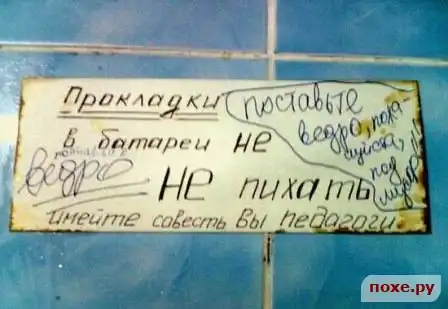 Прокладки
в батареи не
не пихать
имейте совесть вы педагоги
поставьте
ведро, пожа-
луйста,
под
ведро
похе.ру